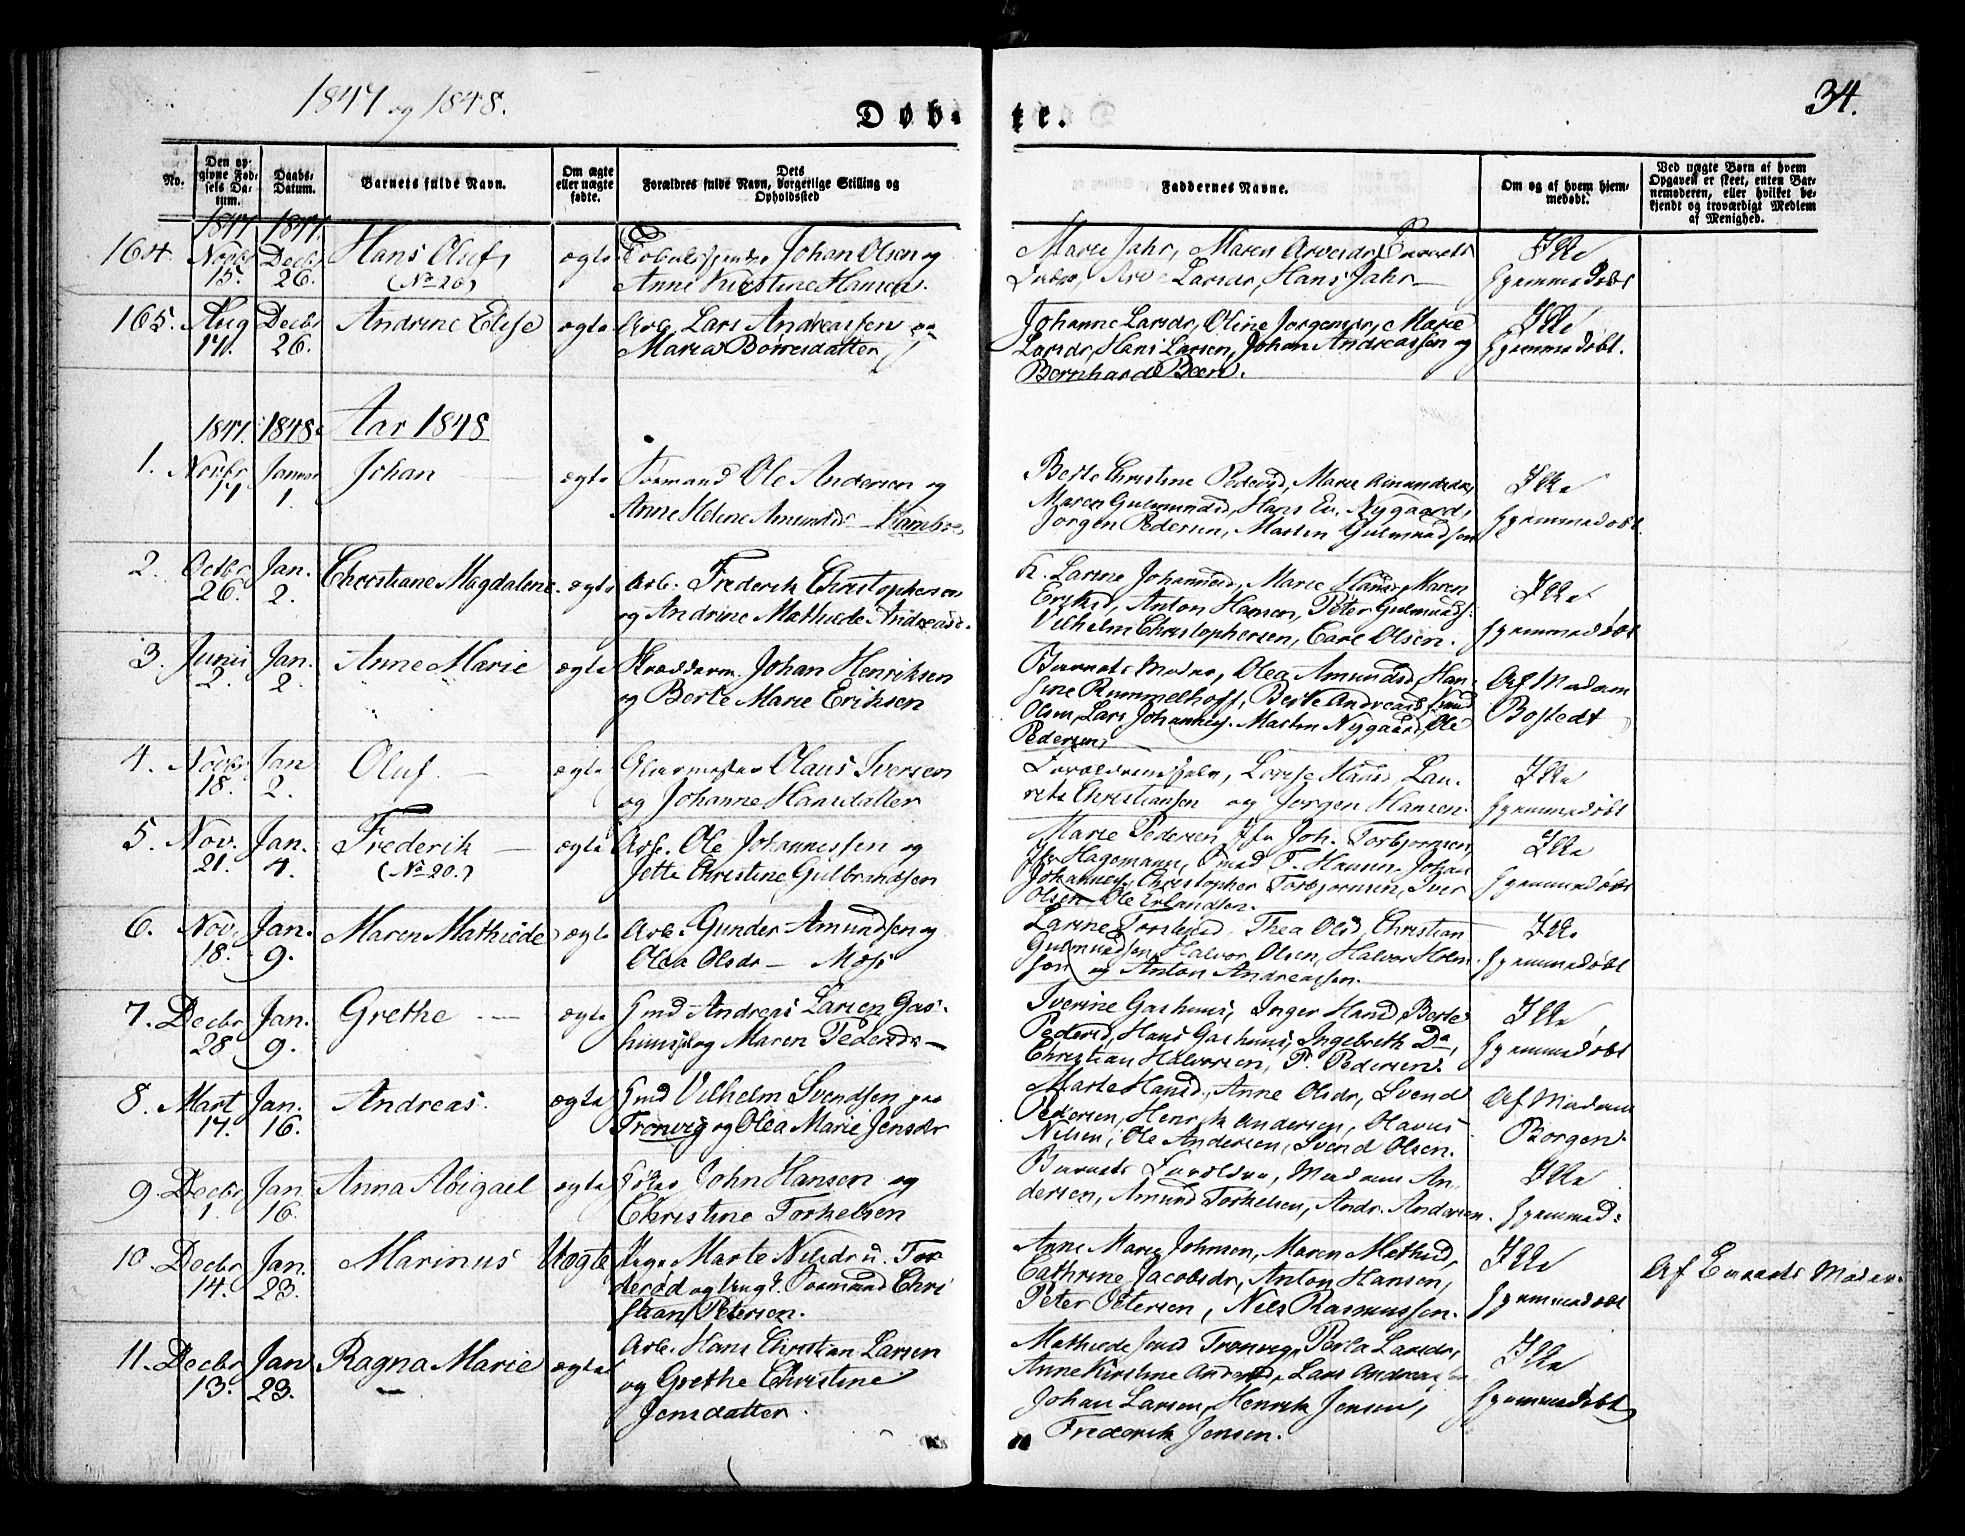 1847 og 1848.
Døbte.
34.
No.
Den opgivne Fødsels Datum.
Daabs-Datum.
Barnets fulde Navn.
Om ægte eller uægte fødte.
Dets Forældres fulde Navn, borgerlige Stilling og Opholdssted
Faddernes Navne.
Om og af hvem hjemmedøbt.
Ved uægte Børn af hvem Opgaven er skeet, enten Barnemoderen, eller hvilket bekjendt og troværdigt Medlem af Menighed.
1847. 1847.
164. Novbr 15. Decbr 26. Hans Oluf, (No 20) ægte
Johan Olsen og
Anne Kirstine Hansen.
Marie Jahr, Maren
Larsdr, Hans Jahr
Ikke
hjemmedøbt
165. Aug 17. Decbr 26. Andrine Elise ægte
Arb. Lars Andreassen og
Maria Børresdatter
Johanne Larsdr, Oline Jørgensdr, Marie
Larsdr, Hans Larsen, Johan Andreassen og
Bernhard Been.
Ikke
hjemmedøbt.
1847. 1848. Aar 1848
1. Novbr 17 Januar 1. Johan ægte
Ole Andersen og
Anne Helene Amundsdr Kambo
Berte Christine Pedersd, Marie
Maren Gulmundsd, Hans Ev. Nygaard,
Jørgen Pedersen, Martin Gulmundsen
Ikke
hjemmedøbt
2. Octbr 26. Jan. 2. Christiane Magdalene. ægte
Arb. Frederik Christophersen
og Andrine Mathilde Andreasd.
Larine Johannesd, Marie Hansd, Maren
Eriksd, Anton Hansen, Peter Gulmunds.
Vilhelm Christophersen, Carl Olsen.
Ikke
hjemmedøbt
3. Junii 2. Jan. 2. Anne Marie ægte
Skrædderm. Johan Henriksen
og Berte Marie Eriksen
Barnets Moder, Olea Amundsd, Han-
sine Rummelhoff, Berte Andreasd, Knud
Olsen, Lars Johannes. Martin Nygaard, Ole
Pedersen,
Af Madam
Bostedt
4. Novbr 18. Jan 2. Oluf. ægte
Glarmester Olaus Iversen
og Johanne Hansdatter
Forældrene selv, Lovise Hansd, Lau-
Christiansen og Jørgen Hansen.
Ikke
hjemmedøbt
5. Nov. 21. Jan. 4. Frederik (No 20.) ægte
Arb. Ole Johannessen og
Jette Christine Gulbrandsen
Marie Pedersen, Joh. Torbjørnsen,
Hagemann, Hansen, Johan
Johannes. Christopher Torbjørnsen, Iver
Olsen, Ole Erlandsen.
Ikke
hjemmedøbt
6. Nov. 18. Jan. 9. Maren Mathilde ægte
Arb. Gunder Amundsen og
Olea Olsdr Moss
Larine Thea Olsd, Christian
Gulmundsen, Halvor Olsen, Halvor Holm-
sen og Anton Andreassen.
Ikke
hjemmedøbt
7. Decbr 28 Jan. 9. Grethe ægte
Gmd Andreas Larsen Gas-
huus og Maren Pedersdr
Iverine Gashuus, Inger Hansd, Berte
Pedersd, Hans Gashuus, Ingebreth Do,
Christian Halvorsen, P. Pedersen.
Ikke
hjemmedøbt
8. Mart 17. Jan. 16. Andreas. ægte
Gmd Vilhelm Svendsen paa
Trønvig og Olea Marie Jensdr
Marte Hansd., Anne Olsdr, Svend
Pedersen, Henrik Andersen, Olavus
Nilsen, Ole Andersen, Svend Olsen.
Af Madam
Borgen.
9. Decbr 1. Jan 16. Anna Abigael ægte
John Hansen og
Christine Torkelsen
Barnets Forældre, Madam An-
dersen, Amund Torkelsen, Andr. Andersen.
Ikke
hjemmed:
10. Decbr 14. Jan. 23. Marinus Uægte
Pige Marte Nilsdr u. Tor-
derød og Ungk. Sømand Chri-
stian Petersen.
Anne Marie Johnsen, Maren Mathisd,
Cathrine Jacobsdr, Anton Hansen,
Peter Petersen, Nils Rasmussen.
Ikke
hjemmedøbt
Af Barnets Moder.
11. Decbr 13. Jan 23. Ragna Marie ægte
Arb. Hans Christian Larsen
og Grethe Christine
Jensdatter.
Mathilde Trønvig, Larsdr,
Anne Kirstine Andersd, Lars Andreassen
Johan Larsen, Henrik Jensen,
Frederik Jensen.
Ikke
hjemmedøbt